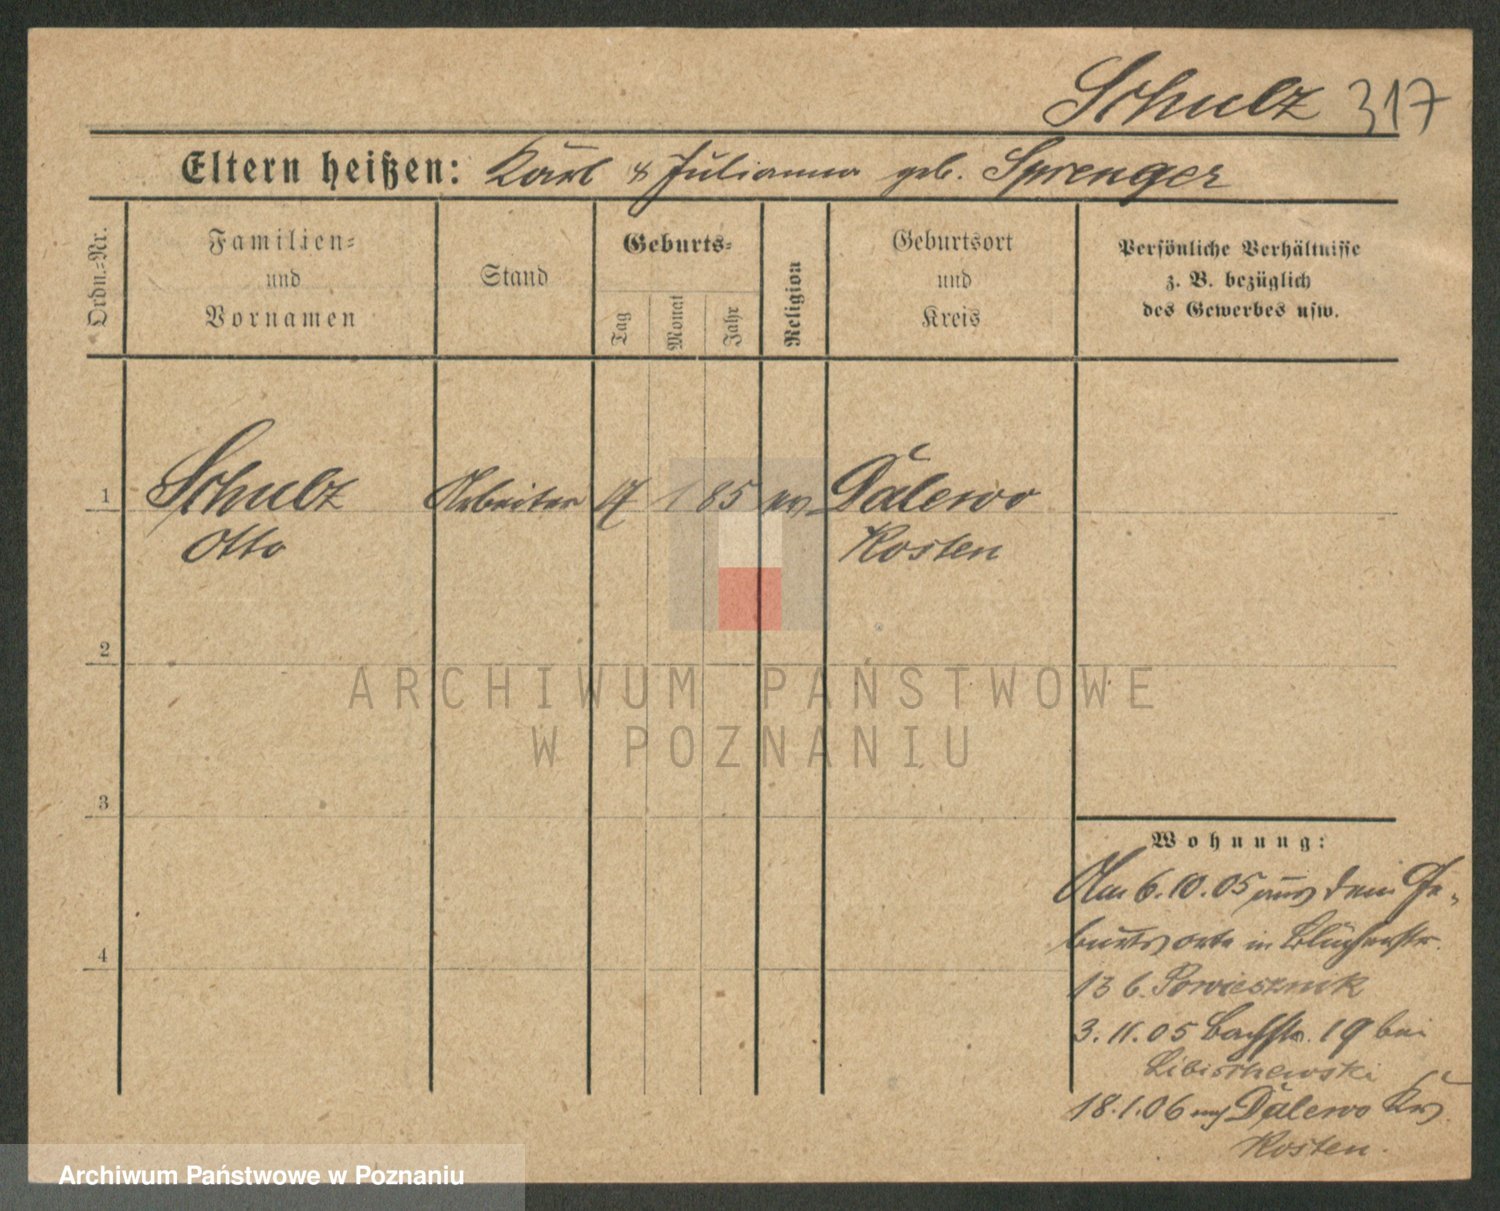 Schulz 317
Eltern heißen: Karl & Julianna geb. Sprenger
Ordn.=Nr.
Familien=
und
Vornamen
Stand
Geburts=
Tag
Monat
Jahr
Religion
Geburtsort
und
Kreis
Persönliche Verhältnisse
z. B. bezüglich
des Gewerbes usw.
1 Schulz Arbeiter 17 1 85 ev. Dalewo
Otto Kosten
2
ARCHIWUM PAŃSTWOWE
W POZNANIU
3
Wohnung:
Am 6.10.05 aus dem Ge-
burtsorte in Blücherstr.
13 b. Powiesznik
4
3.11.05 Bachstr. 19 bei
18.1.06 nach Dalewo Krs.
Kosten.
Archiwum Państwowe w Poznaniu